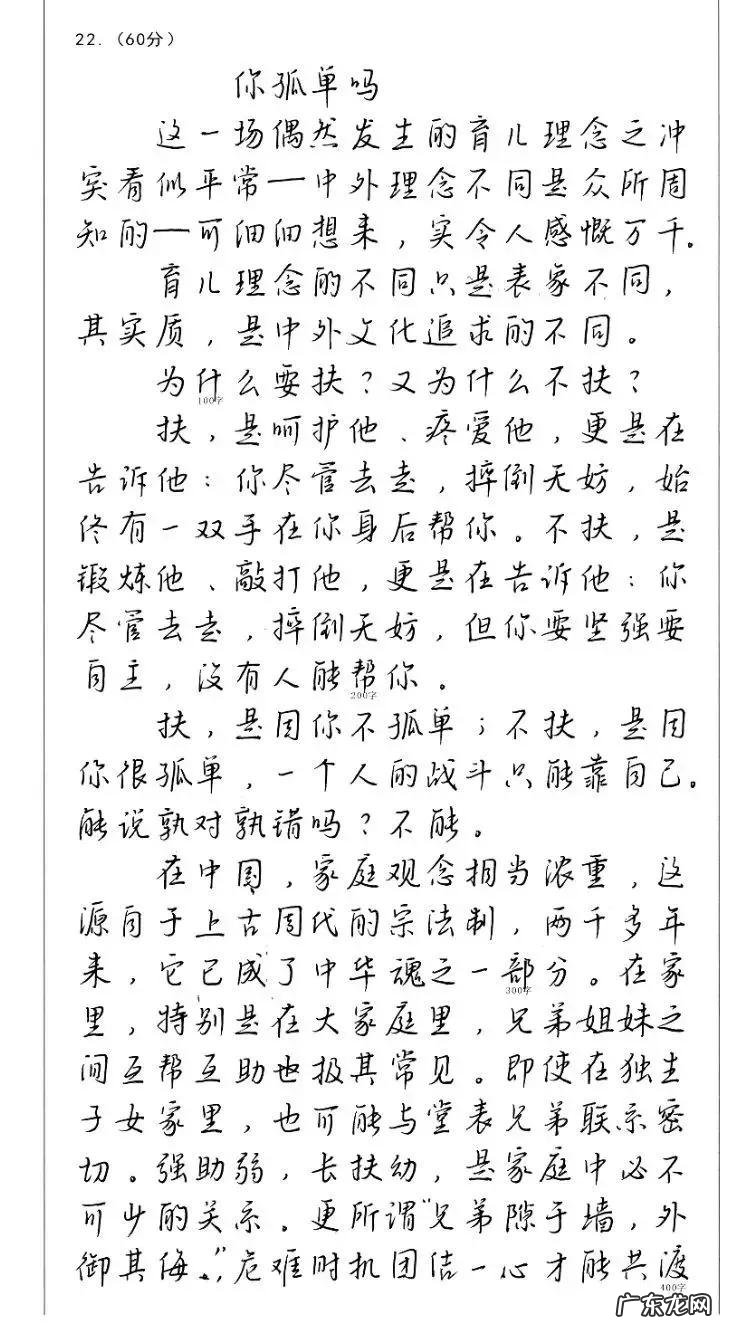 22.（60分）
你孤单吗
这一场偶然发生的育儿理念之冲
突看似平常一中外理念不同是众所周
知的一可细细想来，实令人感慨万千。
育儿理念的不同只是表象不同，
其实质，是中外文化追求的不同。
为什么要扶？又为什么不扶？
100字
扶，是呵护他、疼爱他，更是在
告诉他：你尽管去走，摔倒无妨，始
终有一双手在你身后帮你。不扶，是
锻炼他、敲打他，更是在告诉他：你
尽管去走，摔倒无妨，但你要坚强要
自主，没有人能帮你。
200字
扶，是因你不孤单；不扶，是因
你很孤单，一个人的战斗只能靠自己。
能说孰对孰错吗？不能。
在中国，家庭观念相当浓重，这
源自于上古周代的宗法制，两千多年
来，它已成了中华魂之一部分。在家
300字
里，特别是在大家庭里，兄弟姐妹之
间互帮互助也极其常见。即使在独生
子女家里，也可能与堂表兄弟联系密
切。强助弱，长扶幼，是家庭中必不
可少的关系。更所谓“兄弟隙于墙，外
御其侮。”，危难时机团结一心才能共渡
400字
广东龙网